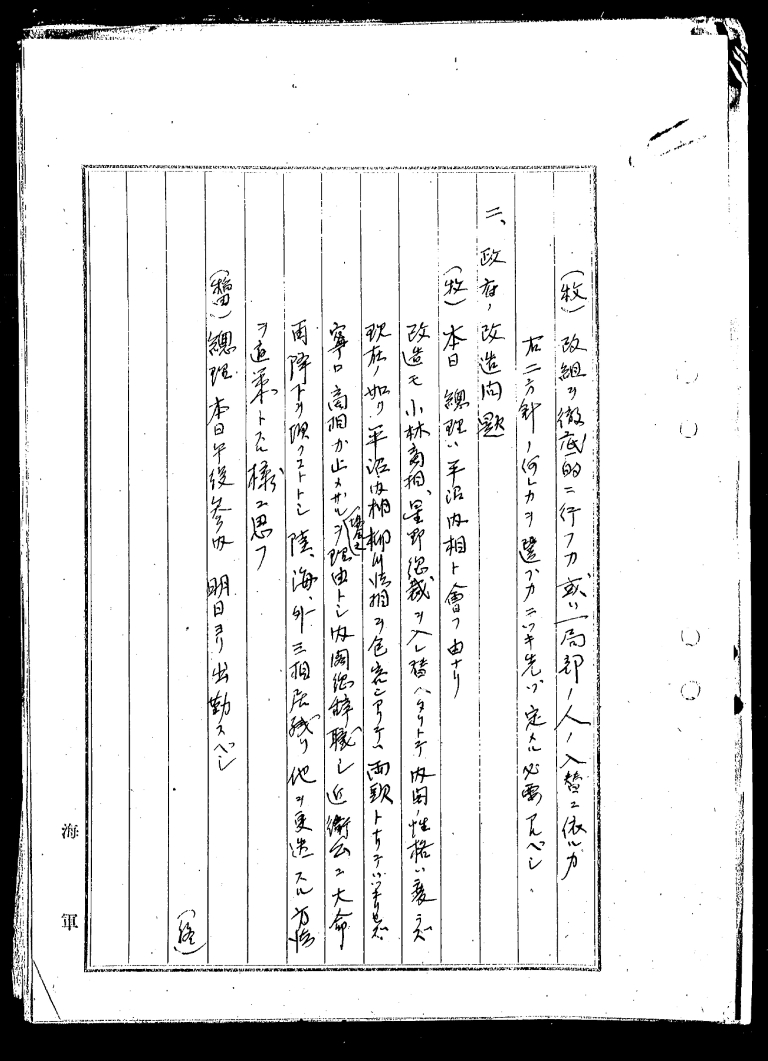 (牧) 改組ヲ徹底的ニ行フカ或ハ一局部ノ人ノ入替ニ依ルカ
右二方針ノ何レカヲ選ブカニツキ先ヅ定メル必要アルベシ、
二、政府ノ改造問題
(牧) 本日 總理ハ平沼内相ト會フ由ナリ
改造モ小林商相、星野總裁ヲ入レ替ヘタリトテ内閣ノ性格ハ變ラズ
現在ノ如ク平沼内相柳川法相ヲ包容シアリテハ両頭トナリテハ
寧ロ商相カ止メザルヲ理由トシ内閣總辭職シ近衛公ニ大命
再降下ヲ願フコトトシ 陸、海、外三相居残リ他ヲ更迭スル方法
ヲ適策トスル樣ニ思フ
(稲田) 總理本日午後参内 明日ヨリ出勤スベシ
(終)
海軍